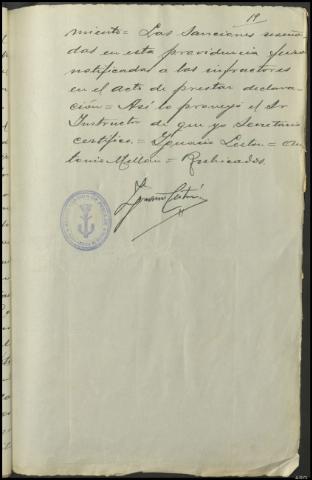 19
miento = Las Sanciones reseña
das en esta providencia fueron
notificadas a los infractores
en el acto de prestar declara-
ción = Así lo proveyó el Sr
Instructor de que yo Secretario
certifico. = Ignacio = An
tonio Millán = Rubricados.
Ignacio